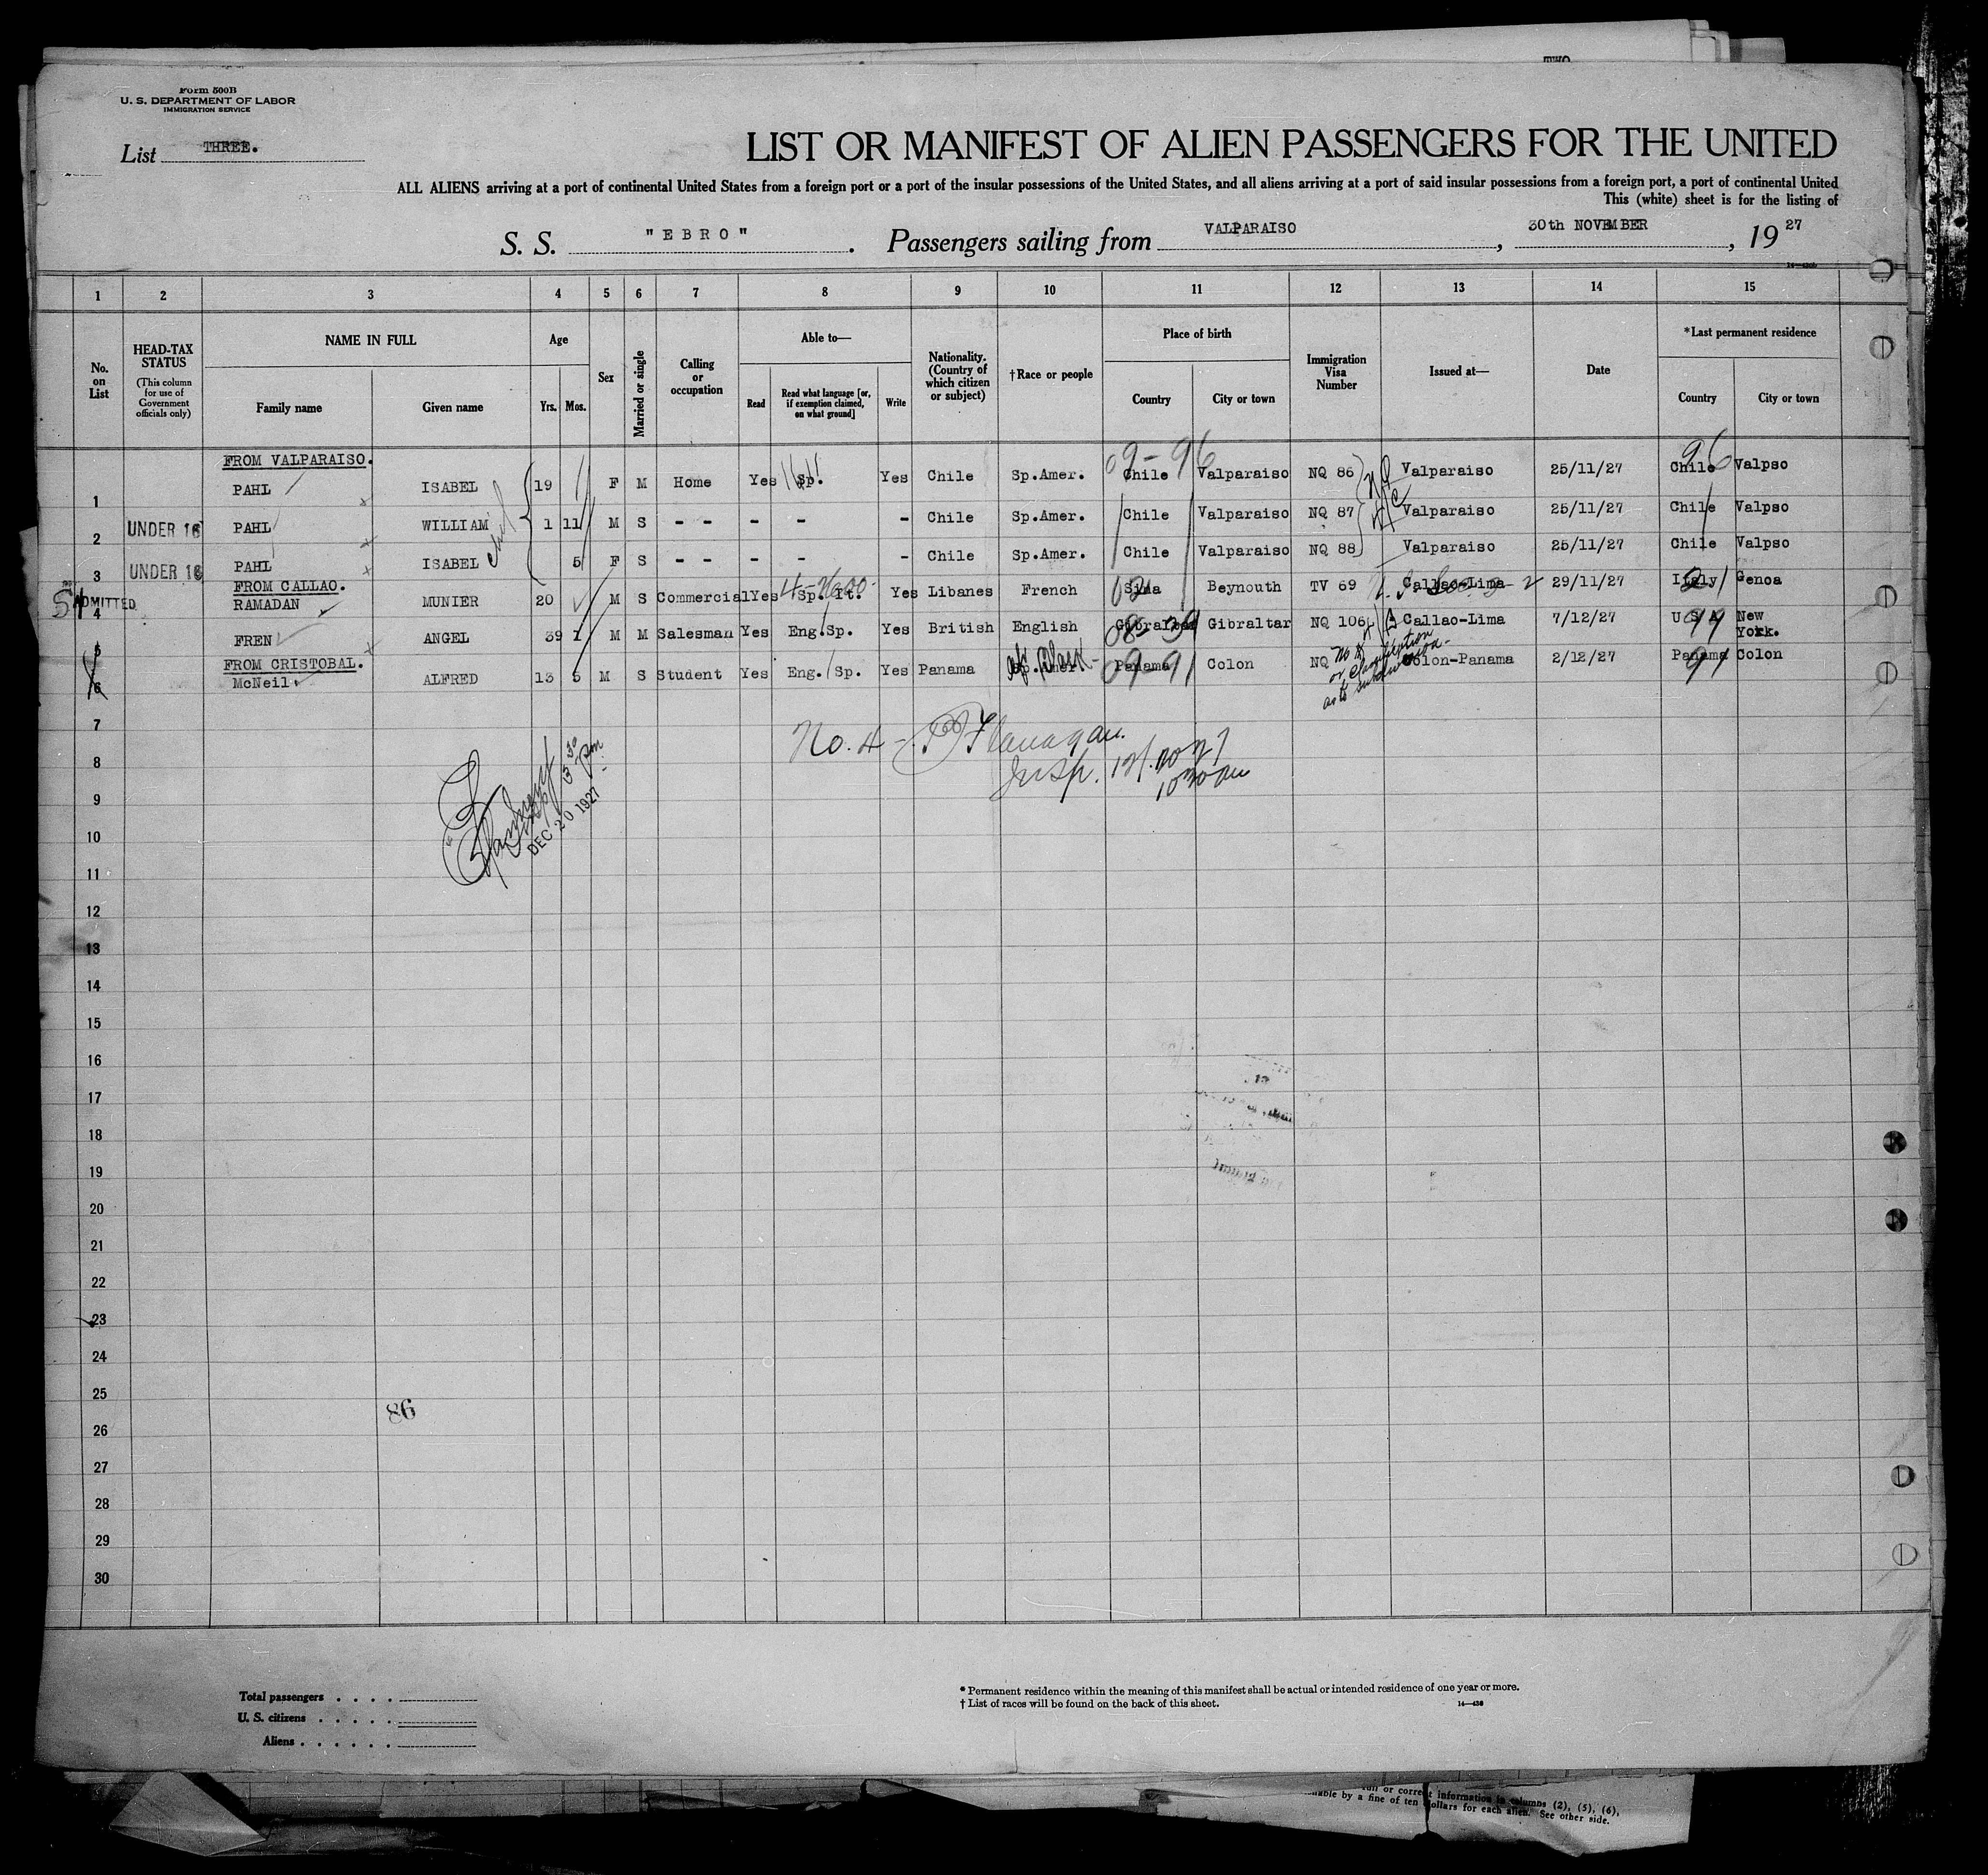 TWO
Form 500B
U. S. DEPARTMENT OF LABOR
IMMIGRATION SERVICE
List THREE.
LIST OR MANIFEST OF ALIEN PASSENGERS FOR THE UNITED
ALL ALIENS arriving at a port of continental United States from a foreign port or a port of the insular possessions of the United States, and all aliens arriving at a port of said insular possessions from a foreign port, a port of continental United
This (white) sheet is for the listing of
S. S. "EBRO". Passengers sailing from VALPARAISO, 30th NOVEMBER, 1927
1 2 3 4 5 6 7 8 9 10 11 12 13 14 15
No. on List
HEAD-TAX STATUS (This column for use of Government officials only)
NAME IN FULL
Family name Given name
Age
Yrs. Mos.
Sex
Married or single
Calling or occupation
Able to—
Read Read what language [or, if exemption claimed, on what ground] Write
Nationality. (Country of which citizen or subject)
†Race or people
Place of birth
Country City or town
Immigration Visa Number
Issued at—
Date
*Last permanent residence
Country City or town
FROM VALPARAISO. 09-96 96
1 PAHL ISABEL 19 F M Home Yes Sp. Yes Chile Sp.Amer. Chile Valparaiso NQ 86 Valparaiso 25/11/27 Chile Valpso
2 UNDER 16 PAHL WILLIAM 1 11 M S - - - - - Chile Sp.Amer. Chile Valparaiso NQ 87 Valparaiso 25/11/27 Chile Valpso
3 UNDER 16 PAHL ISABEL 5 F S - - - - - Chile Sp.Amer. Chile Valparaiso NQ 88 Valparaiso 25/11/27 Chile Valpso
FROM CALLAO.
4 ADMITTED RAMADAN MUNIER 20 M S Commercial Yes Sp. It. Yes Libanes French Sima Beynouth TV 69 Callao-Lima 29/11/27 Italy Genoa
5 FREN ANGEL 39 1 M M Salesman Yes Eng. Sp. Yes British English Gibraltar Gibraltar NQ 106 Callao-Lima 7/12/27 U S A New York.
FROM CRISTOBAL.
6 McNeil. ALFRED 13 5 M S Student Yes Eng. Sp. Yes Panama Sp.Amer. Af. Black- Panama Colon NQ Colon-Panama 2/12/27 Panama Colon
No. 4 - Flanagan.
Insp.
DEC 20 1927
7
8
9
10
11
12
13
14
15
16
17
18
19
20
21
22
23
24
25
86
26
27
28
29
30
Total passengers . . . .
U. S. citizens . . . . .
Aliens . . . . . .
* Permanent residence within the meaning of this manifest shall be actual or intended residence of one year or more.
† List of races will be found on the back of this sheet.
14—438
full or correct information in columns (2), (5), (6),
by a fine of ten dollars for each alien. See other side.